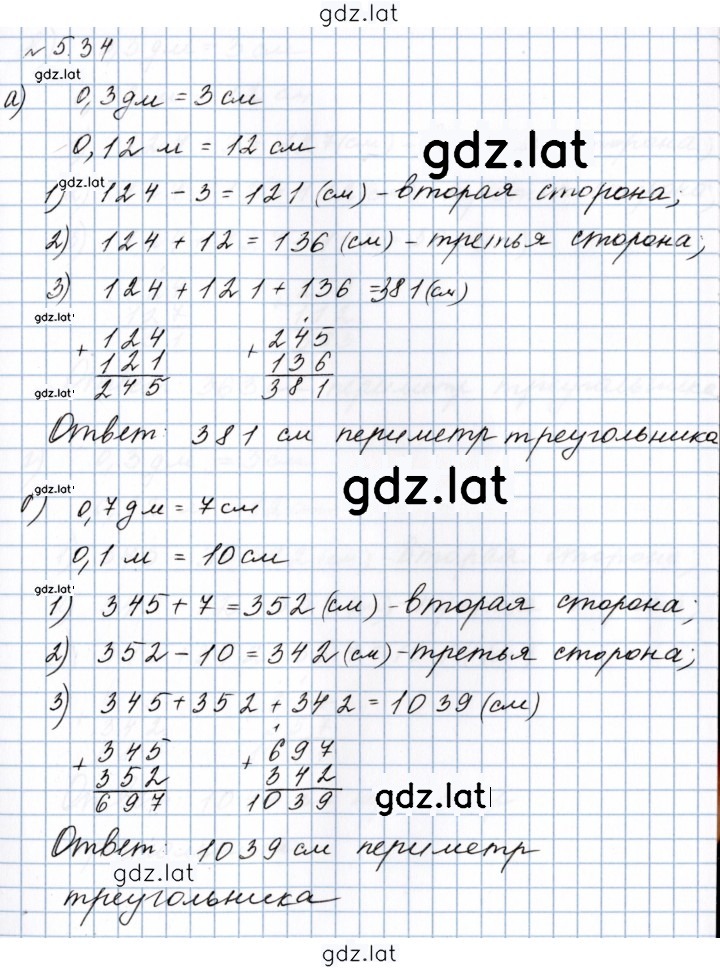 gdz.lat
№ 5.34
gdz.lat
а) 0,3 дм = 3 см
0,12 м = 12 см
gdz.lat
gdz.lat
1) 124 - 3 = 121 (см) - вторая сторона;
2) 124 + 12 = 136 (см) - третья сторона;
3) 124 + 121 + 136 = 381 (см)
gdz.lat
+ 124 + 245
121 136
245 381
gdz.lat
Ответ: 381 см периметр треугольника
gdz.lat
gdz.lat
б) 0,7 дм = 7 см
0,1 м = 10 см
gdz.lat
1) 345 + 7 = 352 (см) - вторая сторона;
2) 352 - 10 = 342 (см) - третья сторона;
3) 345 + 352 + 342 = 1039 (см)
+ 345 + 697
352 342
697 1039
gdz.lat
Ответ: 1039 см периметр
gdz.lat
треугольника
gdz.lat